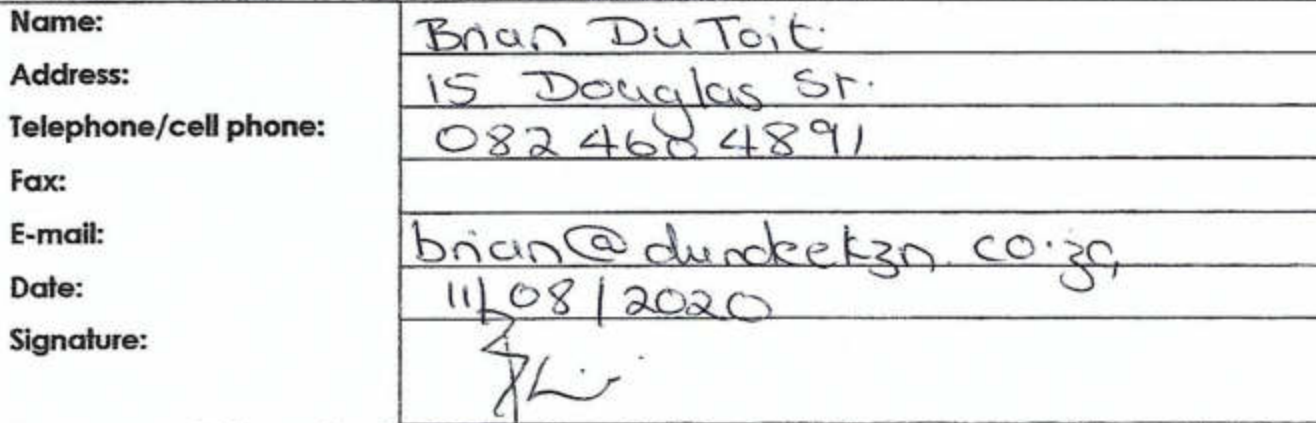 Name: Brian Du Toit
Address: 15 Douglas St.
Telephone/cell phone: 082 460 4891
Fax:
E-mail: brian@dundeekzn.co.za
Date: 11/08/2020
Signature: